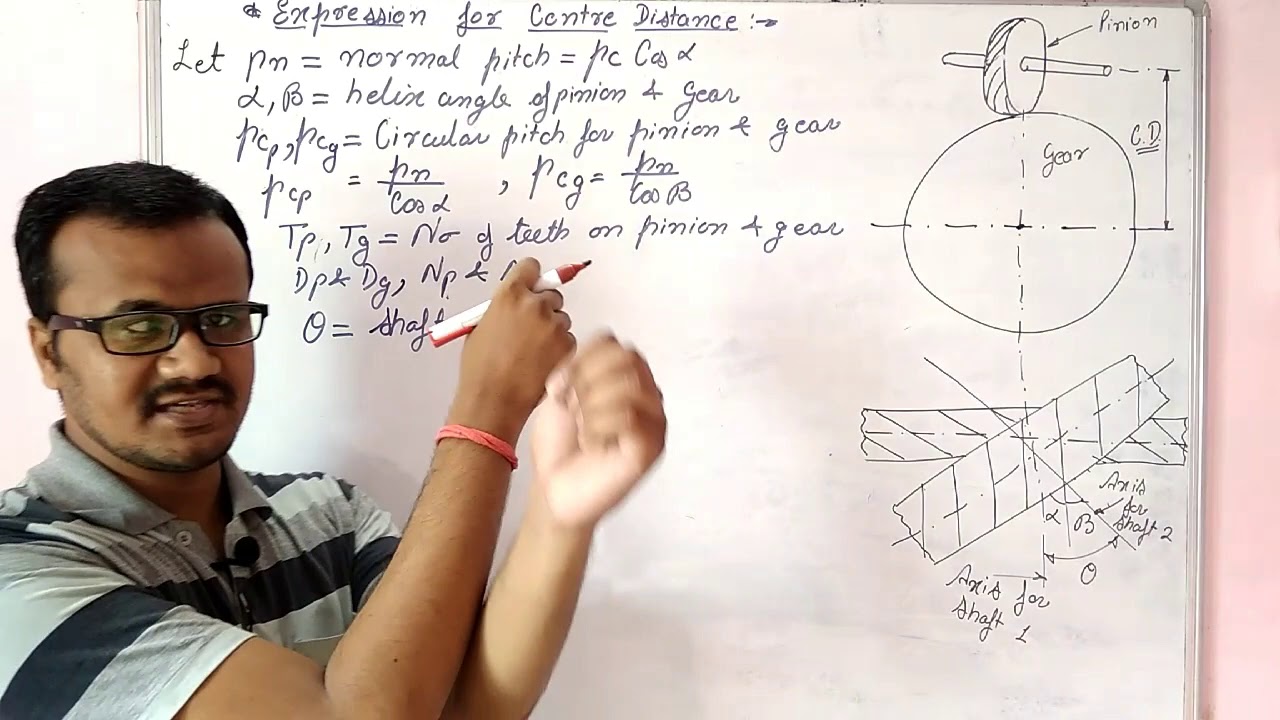 * Expression for Centre Distance :-
Let pn = normal pitch = pc Cos α
α, β = helix angle of pinion & Gear
pcp, pcg = Circular pitch for pinion & gear
pcp = pn / Cos α , pcg = pn / Cos β
Tp, Tg = No of teeth on pinion & gear
Dp & Dg, Np &
θ = Shaft
Pinion
C.D
Gear
α
β
Axis for Shaft 2
θ
Axis for Shaft 1